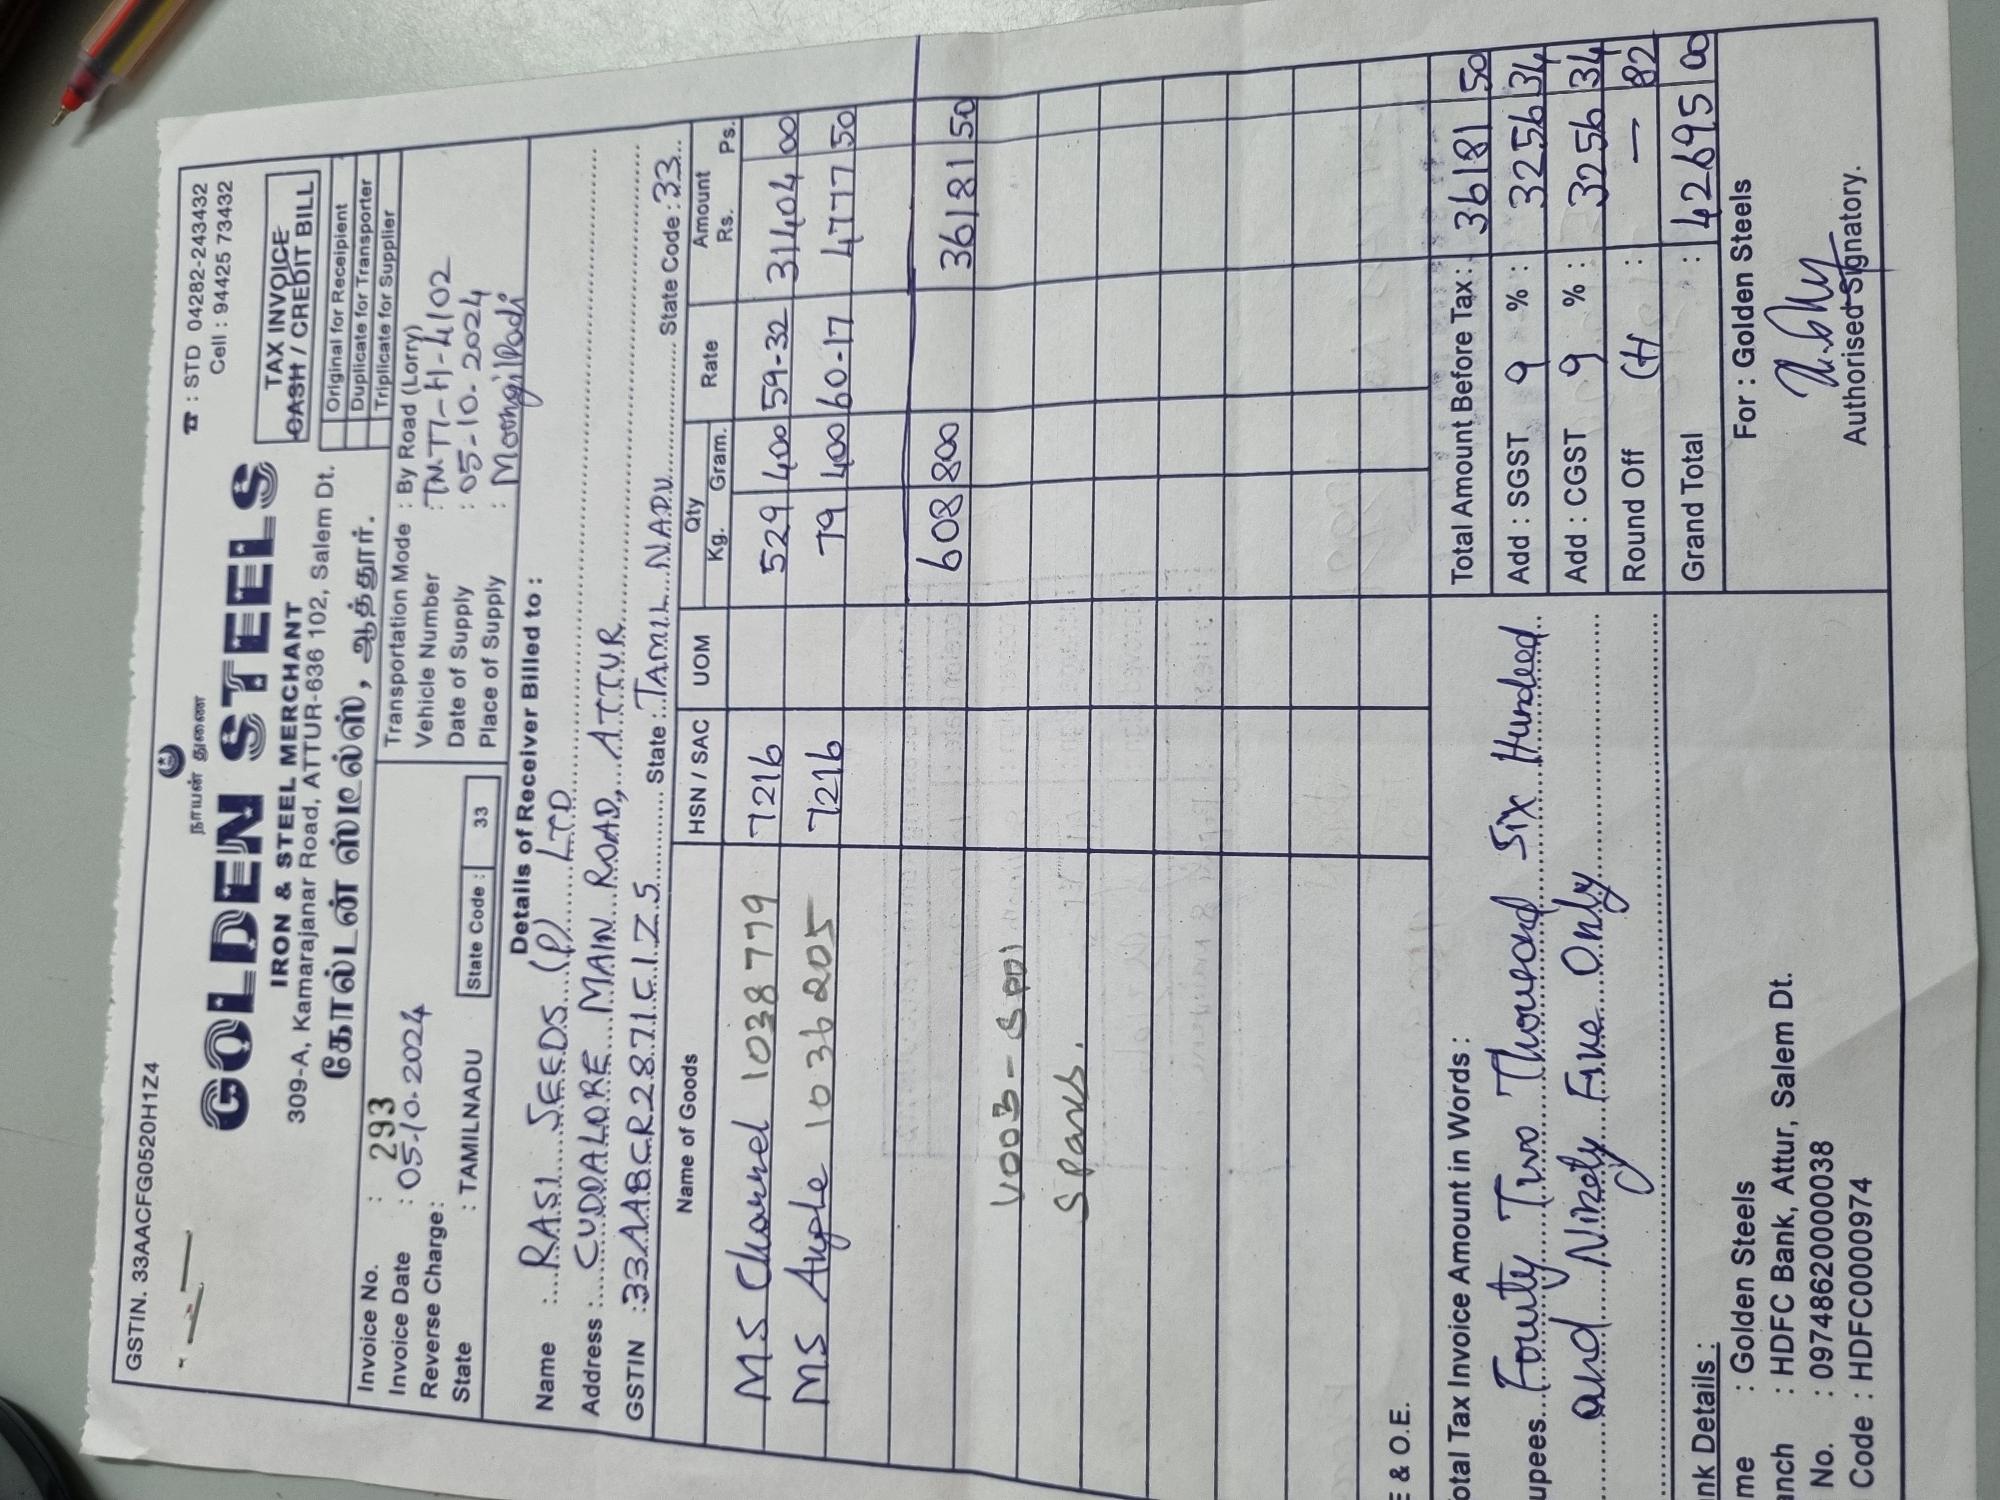 GSTIN. 33AACFG0520H1Z4
நாயன் துணை
☎ : STD 04282-243432
Cell : 94425 73432
GOLDEN STEELS
IRON & STEEL MERCHANT
309-A, Kamarajanar Road, ATTUR-636 102, Salem Dt.
கோல்டன் ஸ்டீல்ஸ், ஆத்தூர்.
TAX INVOICE
CASH / CREDIT BILL
Original for Receipient
Duplicate for Transporter
Triplicate for Supplier
Invoice No. : 293
Invoice Date : 05-10-2024
Reverse Charge :
State : TAMILNADU State Code : 33
Transportation Mode : By Road (Lorry)
Vehicle Number : TN.77-H-4102
Date of Supply : 05-10-2024
Place of Supply : Moongilpadi
Details of Receiver Billed to :
Name : RASI SEEDS (P) LTD
Address : CUDDALORE MAIN ROAD, ATTUR
GSTIN : 33AABCR2871C1Z5 State : TAMIL NADU State Code : 33
Name of Goods HSN / SAC UOM Qty Kg. Gram. Rate Amount Rs. Ps.
MS Channel 1038779 7216 529 400 59-32 31404 00
MS Angle 1036205 7216 79 400 60-17 4777 50
608 800 36181 50
V003 - SP01
Spares.
E & O.E.
otal Tax Invoice Amount in Words :
upees Fourty Two Thousand Six Hundred
and Ninety Five Only
Total Amount Before Tax : 36181 50
Add : SGST 9 % : 3256 34
Add : CGST 9 % : 3256 34
Round Off (+) : — 82
Grand Total : 42695 00
nk Details :
me : Golden Steels
anch : HDFC Bank, Attur, Salem Dt.
No. : 09748620000038
Code : HDFC0000974
For : Golden Steels
Authorised Signatory.